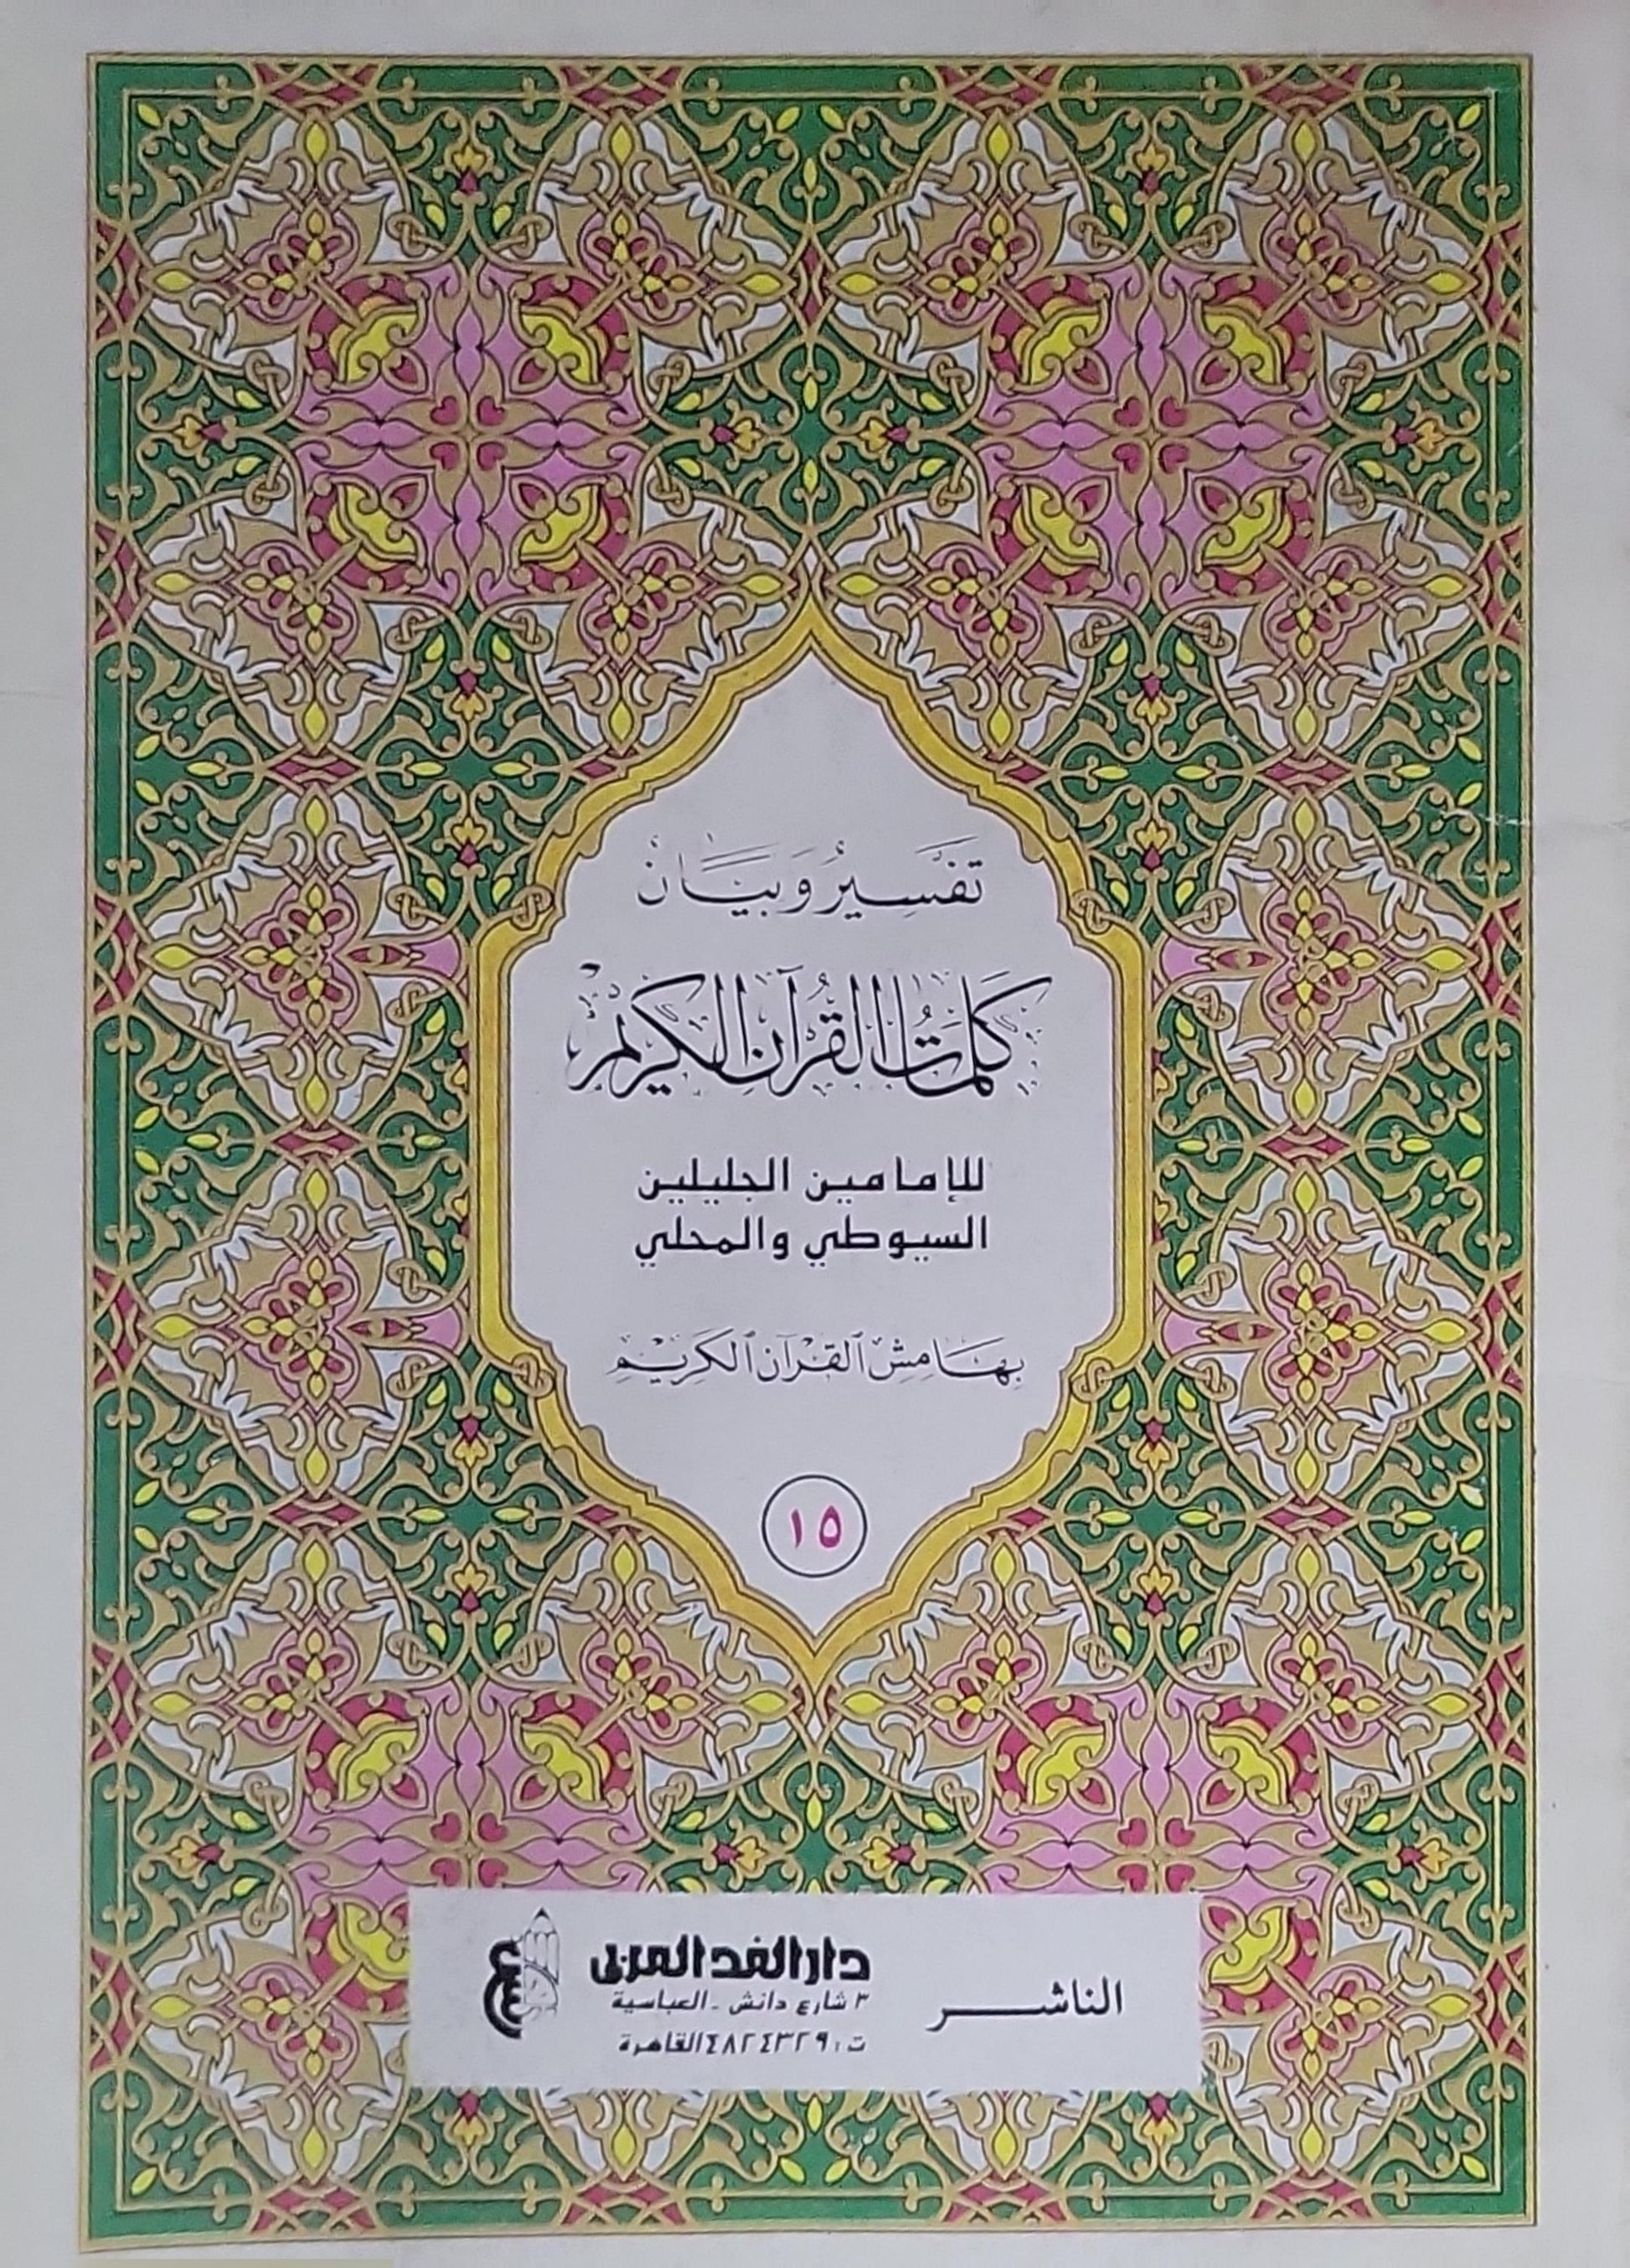 تَفسِيرُ وَبَيَانُ
كَلِمَاتُ القُرآنِ الكَرِيم
للإمامين الجليلين
السيوطي والمحلي
بِهَامِشِ القُرآنِ الكَرِيمِ
١٥
الناشر
دار الغد العربى
٣ شارع دانش - العباسية
ت : ٤٨٢٤٣٢٩ القاهرة